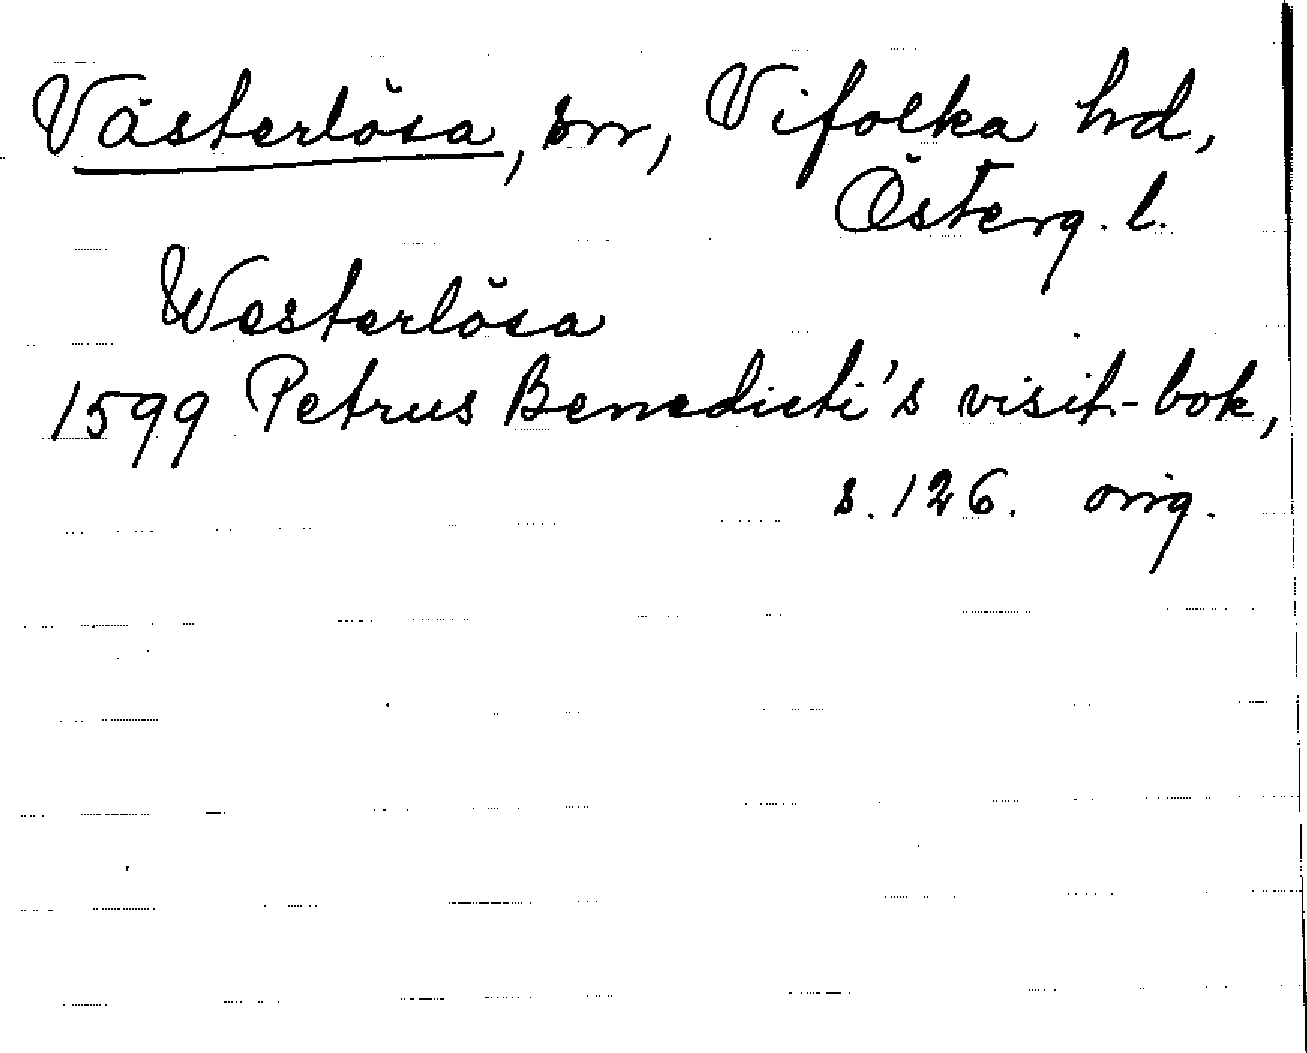 Västerlösa, sn, Vifolka hd,
Österg. l.
Westerlösa
1599 Petrus Benedicti's visit.-bok,
s. 126. orig.